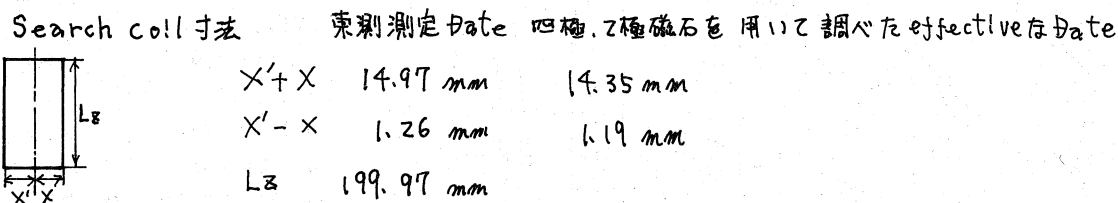 Search coil 寸法 東測測定 Date 四極、2極磁石を 用いて 調べた effectiveな Date
X'+X 14.97 mm 14.35 mm
X'-X 1.26 mm 1.19 mm
Lz 199.97 mm
Lz
X' X